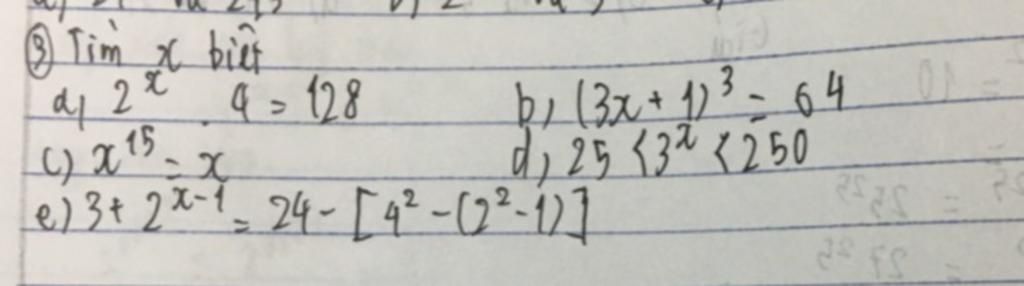 ③ Tìm x biết
a) 2^x . 4 = 128 b) (3x + 1)^3 = 64
c) x^15 = x d) 25 < 3^x < 250
e) 3 + 2^x-1 = 24 - [4^2 - (2^2 - 1)]